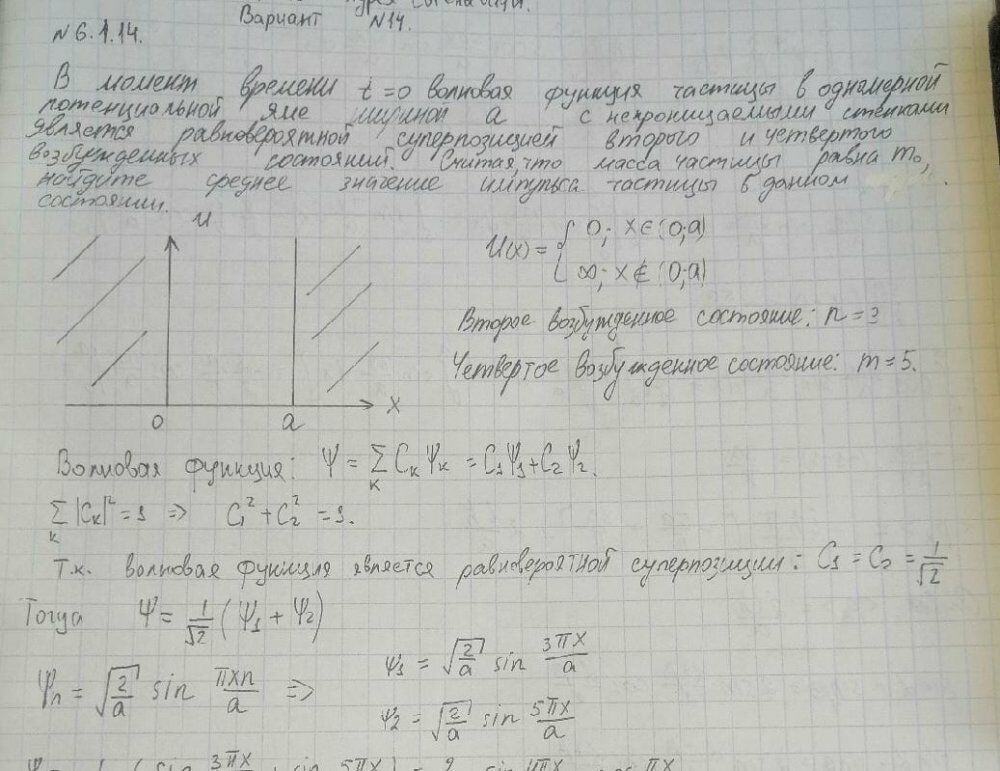 Вариант N14.
N 6.1.14.
В момент времени t=0 волновая функция частицы в одномерной
потенциальной яме шириной a с непроницаемыми стенками
является равновероятной суперпозицией второго и четвертого
возбужденных состояний. Считая, что масса частицы равна m₀,
найдите среднее значение импульса частицы в данном
состоянии.
U
U(x) = { 0; x∈(0;a)
∞; x∉(0;a)
Второе возбужденное состояние: n=3
Четвертое возбужденное состояние: m=5.
0 a x
Волновая функция: Ψ = Σ_K C_K Ψ_K = C₁Ψ₁+C₂Ψ₂.
Σ_K |C_K|² = 1 => C₁² + C₂² = 1.
Т.к. волновая функция является равновероятной суперпозиции: C₁ = C₂ = 1/√2
Тогда Ψ = 1/√2 (Ψ₁ + Ψ₂)
Ψn = √(2/a) sin πxn/a =>
Ψ₁ = √(2/a) sin 3πx/a
Ψ₂ = √(2/a) sin 5πx/a